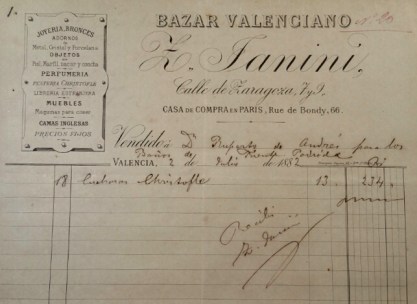 1.
JOYERIA, BRONCES
ADORNOS
Metal, Cristal y Porcelana
OBJETOS
Piel, Marfil, nacar y concha
PERFUMERIA
LIBRERIA EXTRANJERA
MUEBLES
Maquinas para coser
CAMAS INGLESAS
PRECIOS FIJOS
BAZAR VALENCIANO
Z. Janini,
Calle de Zaragoza, 7 y 9.
CASA DE COMPRA EN PARIS, Rue de Bondy, 66.
Vendido á Dn Ruperto de Andrés para los
Baños de Fuente Podrida
VALENCIA, 2 de Julio de 1882
18 Cucharas Christofle 13. 234
Recibí
Z. Janini